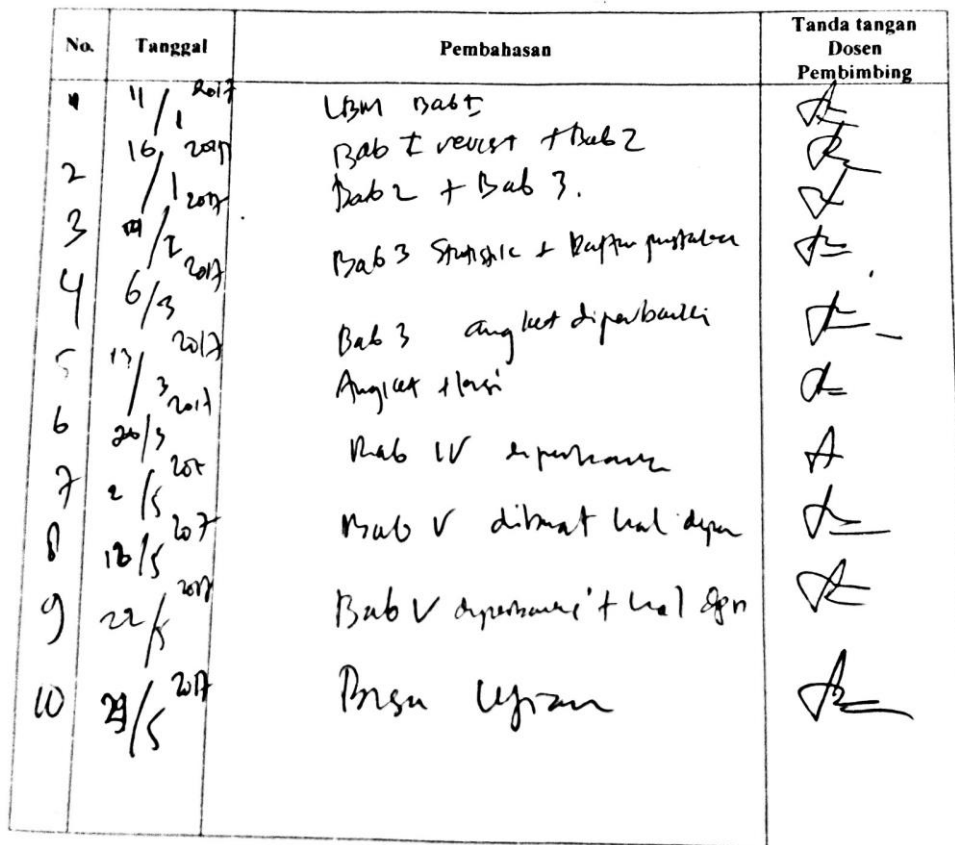 No. Tanggal Pembahasan Tanda tangan Dosen Pembimbing
1 11/1 2017 LBM Bab I
2 16/1 2017 Bab I revisi + Bab 2
3 /2 2017 Bab 2 + Bab 3.
4 6/3 2017 Bab 3 Statistic + Daftar pustaka
5 13/3 2017 Bab 3 angket diperbaiki
6 20/3 2017 Angket
7 2/5 2017 Bab IV diperbaiki
8 18/5 2017 Bab V dibuat hal depan
9 22/5 2017 Bab V diperbaiki + hal dpn
10 29/5 2017 Bisa Ujian